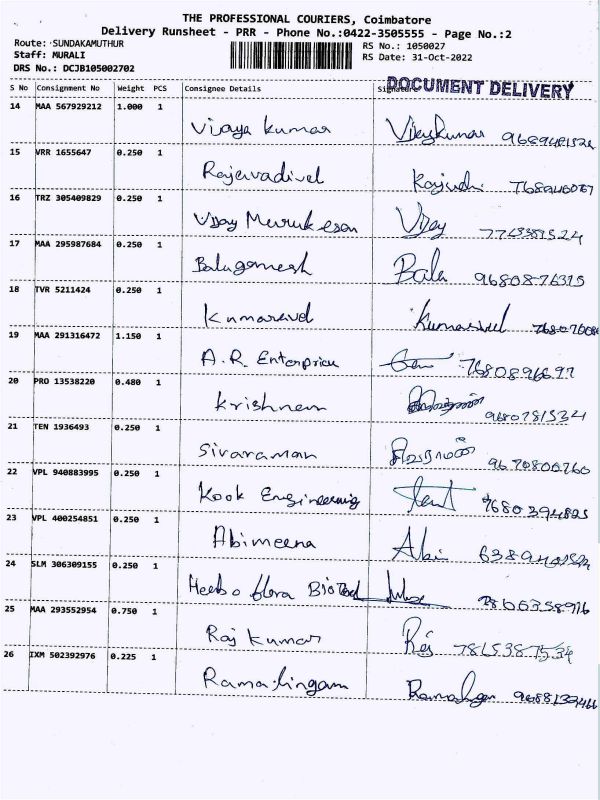 THE PROFESSIONAL COURIERS, Coimbatore
Delivery Runsheet - PRR - Phone No.:0422-3505555 - Page No.:2
Route: SUNDAKAMUTHUR
RS No.: 1050027
Staff: MURALI
RS Date: 31-Oct-2022
DRS No.: DCJB105002702
DOCUMENT DELIVERY
S No Consignment No Weight PCS Consignee Details
14 MAA 567929212 1.000 1
Vijaya kumar Vijaykumar
15 VRR 1655647 0.250 1
Rajavadivel
16 TRZ 305409829 0.250 1
Vijay Murukesan Vijay
17 MAA 295987684 0.250 1
Balaganesh Bala 9680876315
18 TVR 5211424 0.250 1
Kumaravel
19 MAA 291316472 1.150 1
A.R. Enterprice 7680896697
20 PRO 13538220 0.480 1
Krishnan 9680781534
21 TEN 1936493 0.250 1
Sivaraman சிவராமன் 9670800760
22 VPL 940883995 0.250 1
Kook Engineering 7680394895
23 VPL 400254851 0.250 1
Abimeena Abi
24 SLM 306309155 0.250 1
25 MAA 293552954 0.750 1
Raj kumar Raj
26 IXM 502392976 0.225 1
Ramalingam 9688139466